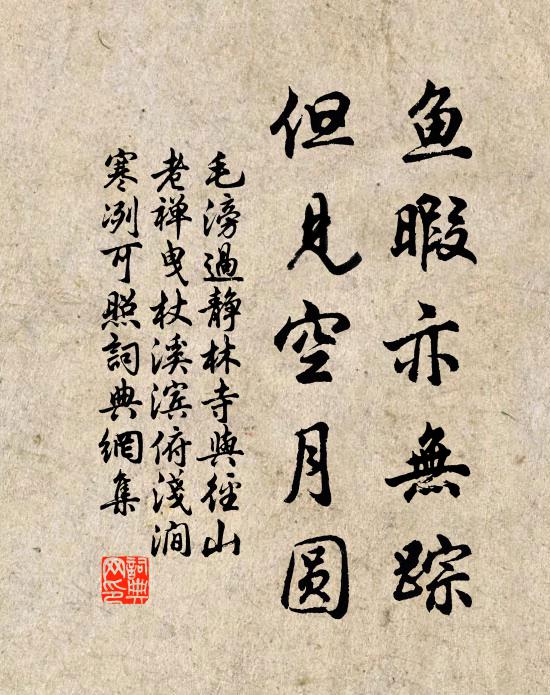 鱼暇亦無踪
但見空月圆
毛滂過静林寺與徑山
老禅曳杖溪滨俯淺涧
寒冽可照詞典網集
詞典网印